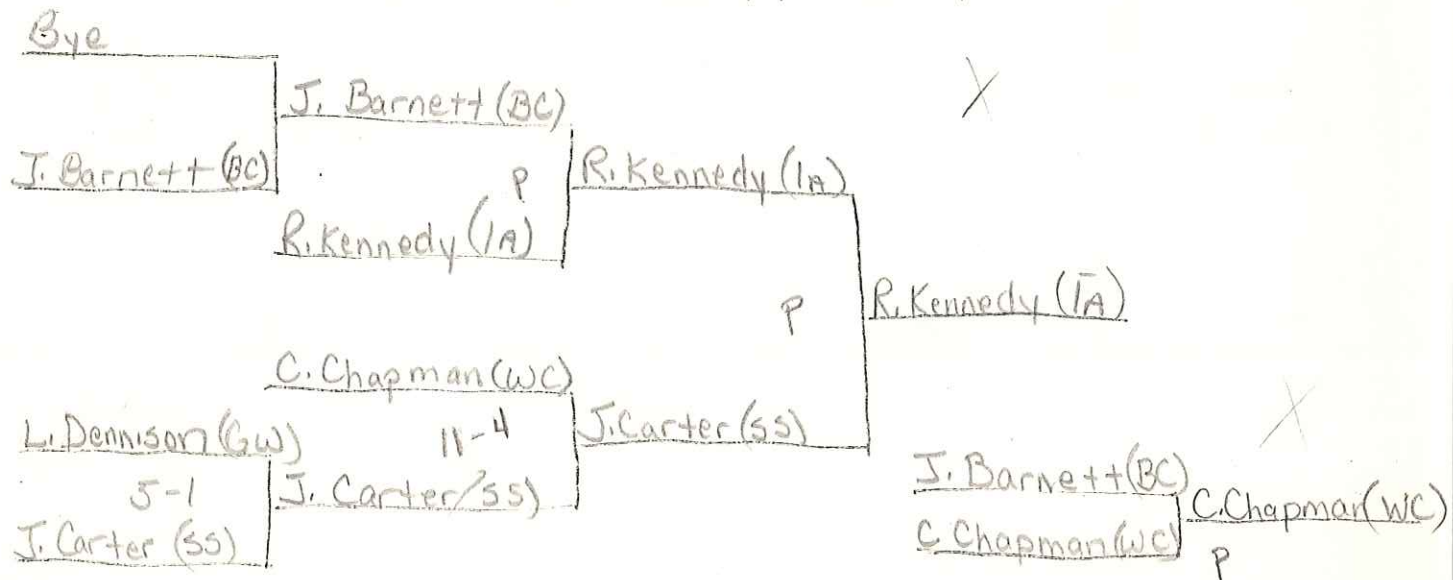 Bye
J. Barnett (BC)
J. Barnett (BC)
P
R. Kennedy (IA)
R. Kennedy (IA)
X
P
R. Kennedy (IA)
C. Chapman (WC)
L. Dennison (GW)
11-4
J. Carter (SS)
5-1
J. Carter (SS)
J. Carter (SS)
X
J. Barnett (BC)
C. Chapman (WC)
C Chapman (WC)
P